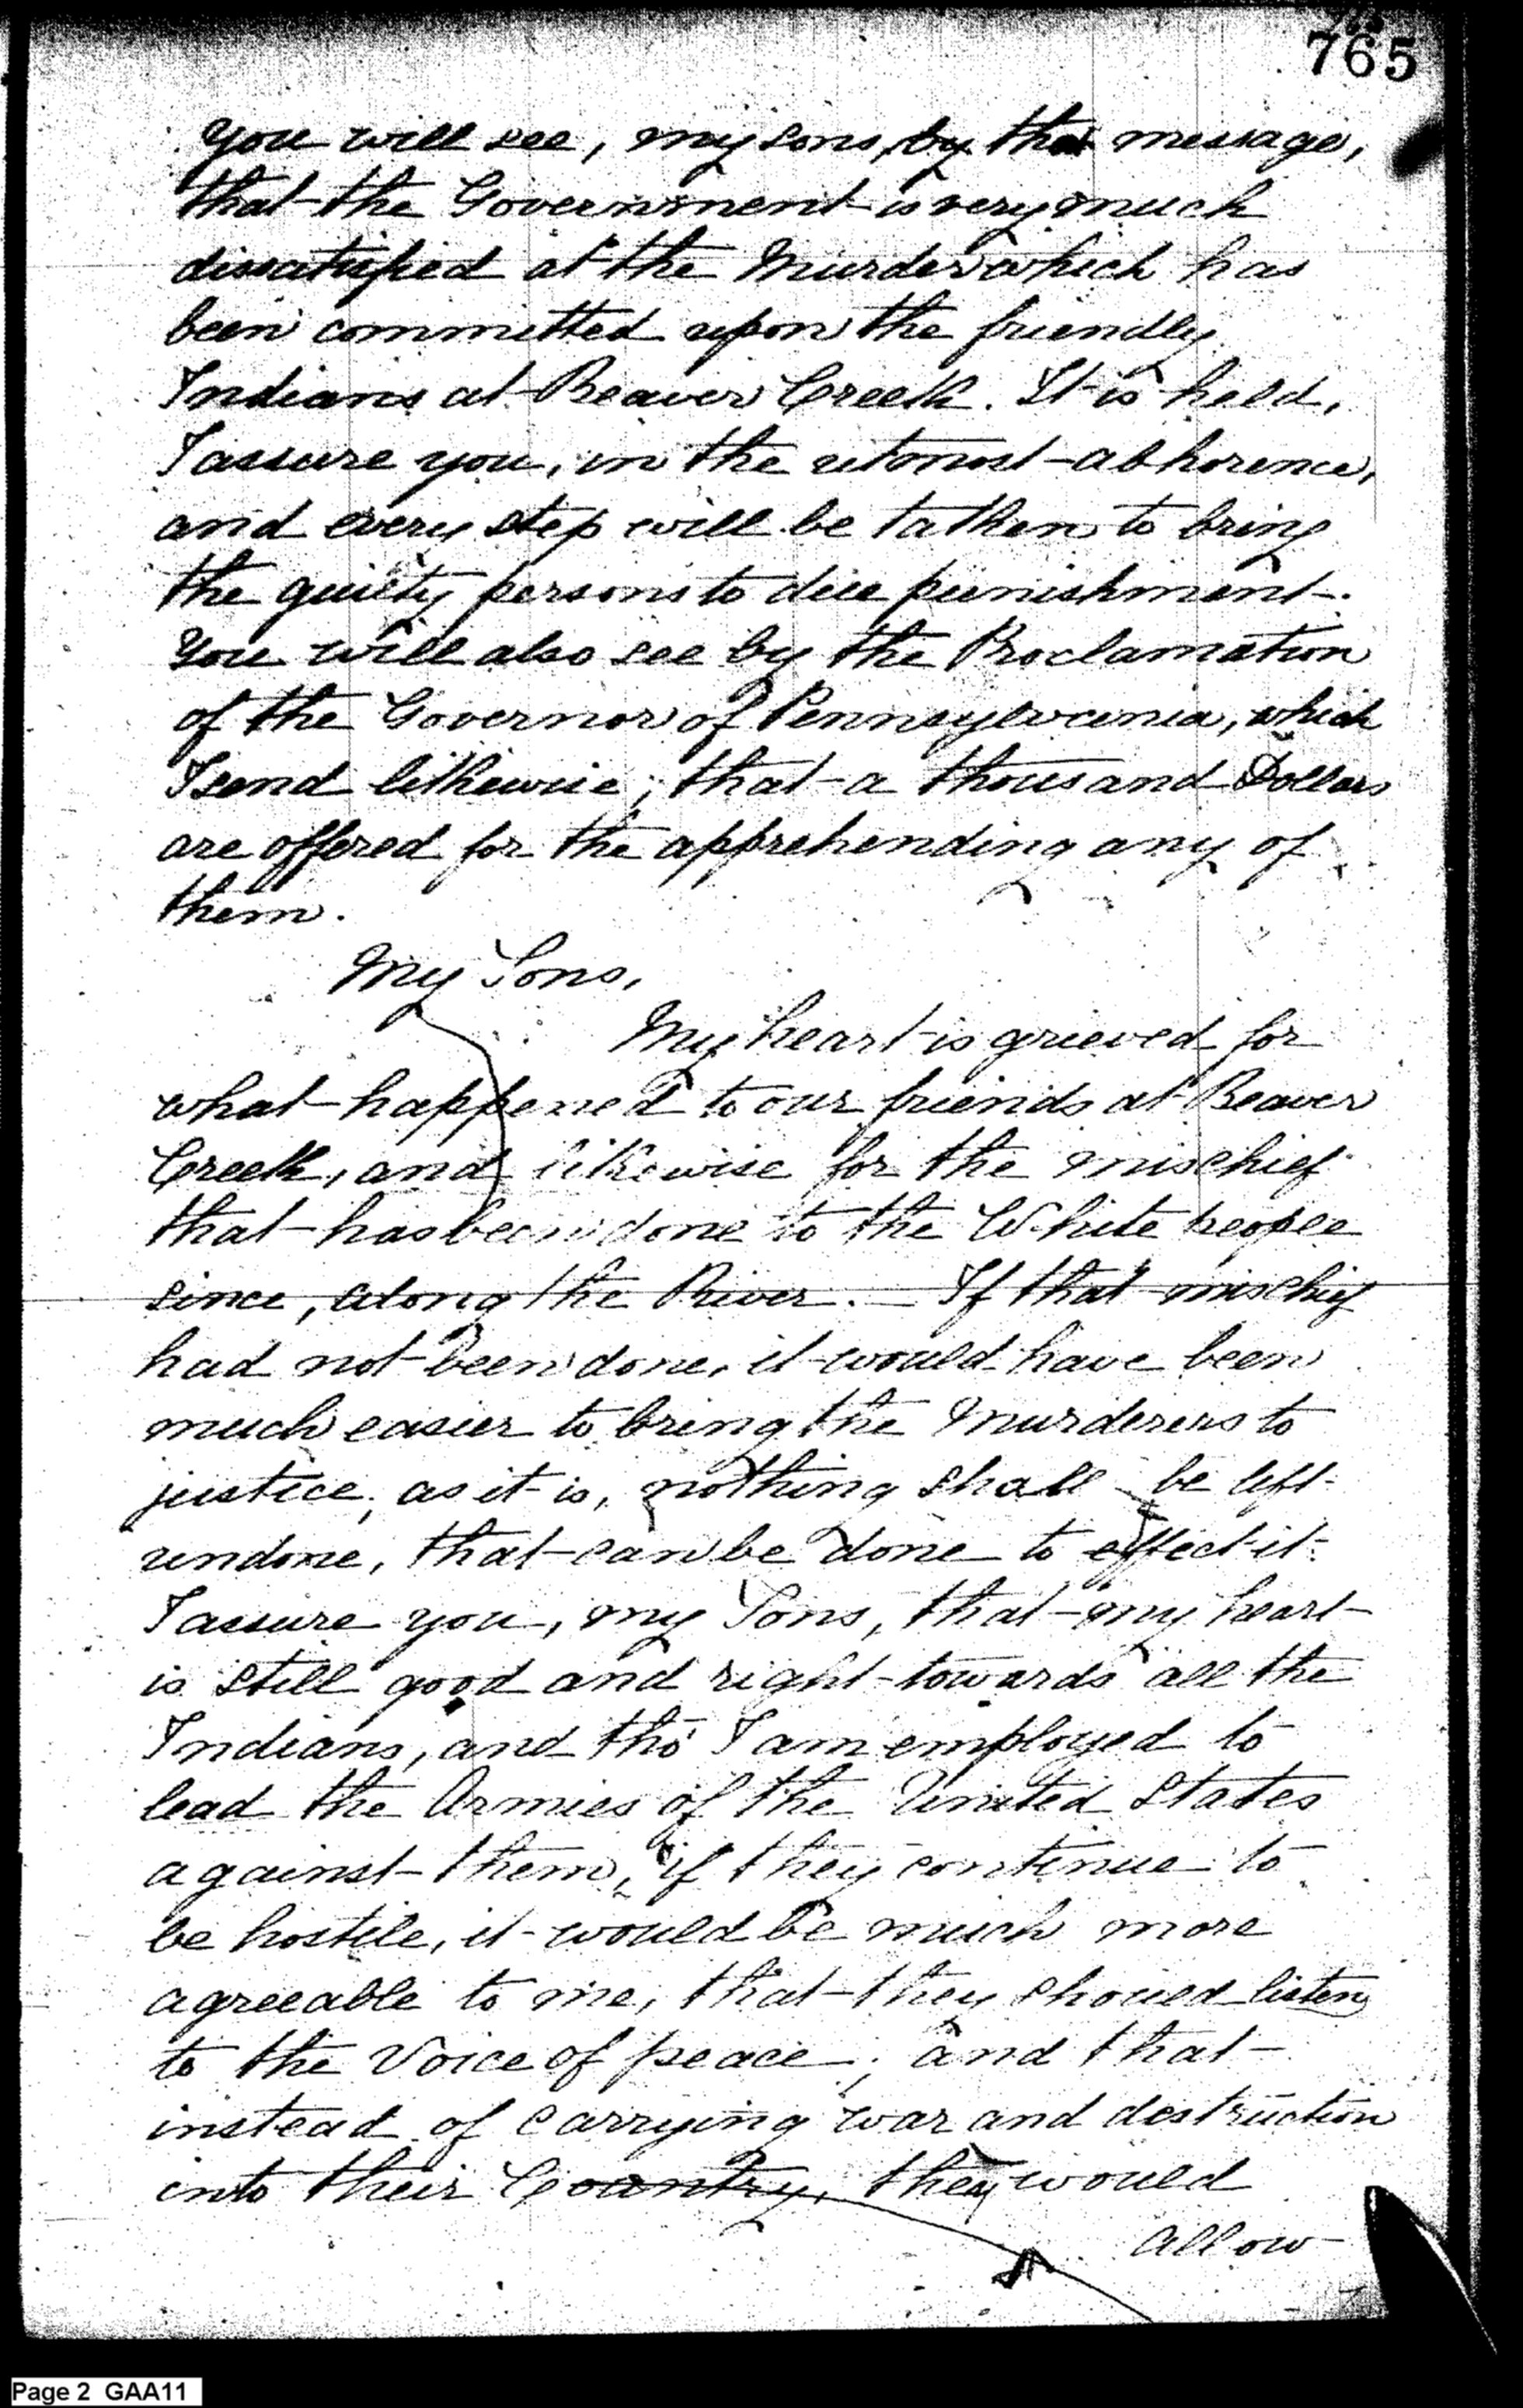 765
You will see, my sons, by that message,
that the Government is very much
dissatisfied at the Murder which has
been committed upon the friendly
Indians at Beaver Creek. It is held,
I assure you, in the utmost abhorence,
and every step will be taken to bring
the guilty persons to due punishment.
You will also see by the Proclamation
of the Governor of Pennsylvania, which
I send likewise; that a thousand Dollars
are offered for the apprehending any of
them.
My Sons,
My heart is grieved for
what happened to our friends at Beaver
Creek, and likewise for the mischief
that has been done to the White people
since, along the River. — If that mischief
had not been done, it would have been
much easier to bring the Murderers to
justice, as it is, nothing shall be left
undone, that can be done to effect it.
I assure you, my Sons, that my heart
is still good and right towards all the
Indians, and tho' I am employed to
lead the Armies of the United States
against them, if they continue to
be hostile, it would be much more
agreeable to me, that they should listen
to the Voice of peace; and that
instead of carrying war and destruction
into their Country, they would
allow
Page 2 GAA11